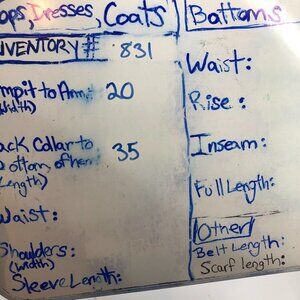 ops, Dresses, Coats
NVENTORY # 831
mpit to Armpit 20
(Width)
ack Collar to 35
Bottom of hem
(Length)
Waist:
Shoulders:
(Width)
Sleeve Length:
Bottoms
Waist:
Rise:
Inseam:
Full Length:
Other
Belt Length:
Scarf length: